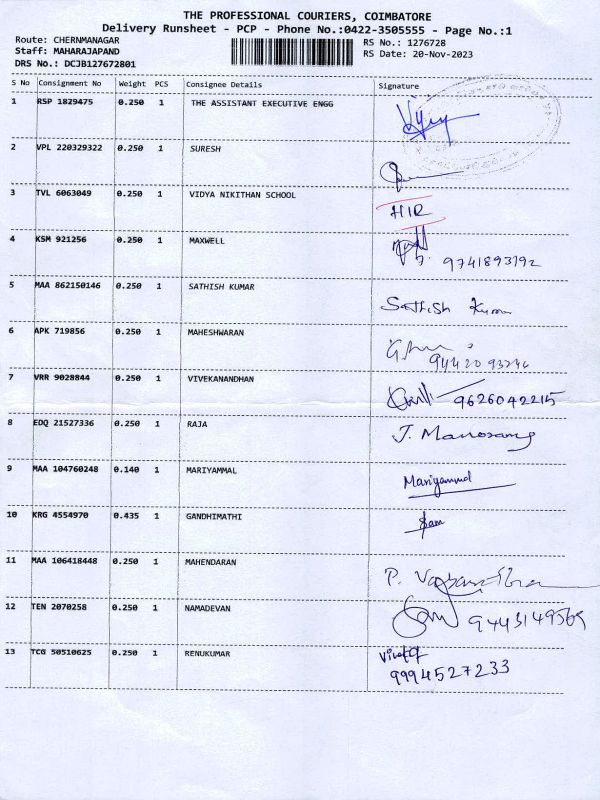 THE PROFESSIONAL COURIERS, COIMBATORE
Delivery Runsheet - PCP - Phone No.:0422-3505555 - Page No.:1
Route: CHERNMANAGAR RS No.: 1276728
Staff: MAHARAJAPAND RS Date: 20-Nov-2023
DRS No.: DCJB127672801
S No Consignment No Weight PCS Consignee Details Signature
1 RSP 1829475 0.250 1 THE ASSISTANT EXECUTIVE ENGG
2 VPL 220329322 0.250 1 SURESH
3 TVL 6063049 0.250 1 VIDYA NIKITHAN SCHOOL HIR
4 KSM 921256 0.250 1 MAXWELL 9741893192
5 MAA 862150146 0.250 1 SATHISH KUMAR Sathish Kumar
6 APK 719856 0.250 1 MAHESHWARAN
7 VRR 9028844 0.250 1 VIVEKANANDHAN 9626042215
8 EDQ 21527336 0.250 1 RAJA J. Manorang
9 MAA 104760248 0.140 1 MARIYAMMAL Mariyammal
10 KRG 4554970 0.435 1 GANDHIMATHI
11 MAA 106418448 0.250 1 MAHENDARAN
12 TEN 2070258 0.250 1 NAMADEVAN 9443149569
13 TCG 50510625 0.250 1 RENUKUMAR
9994527233